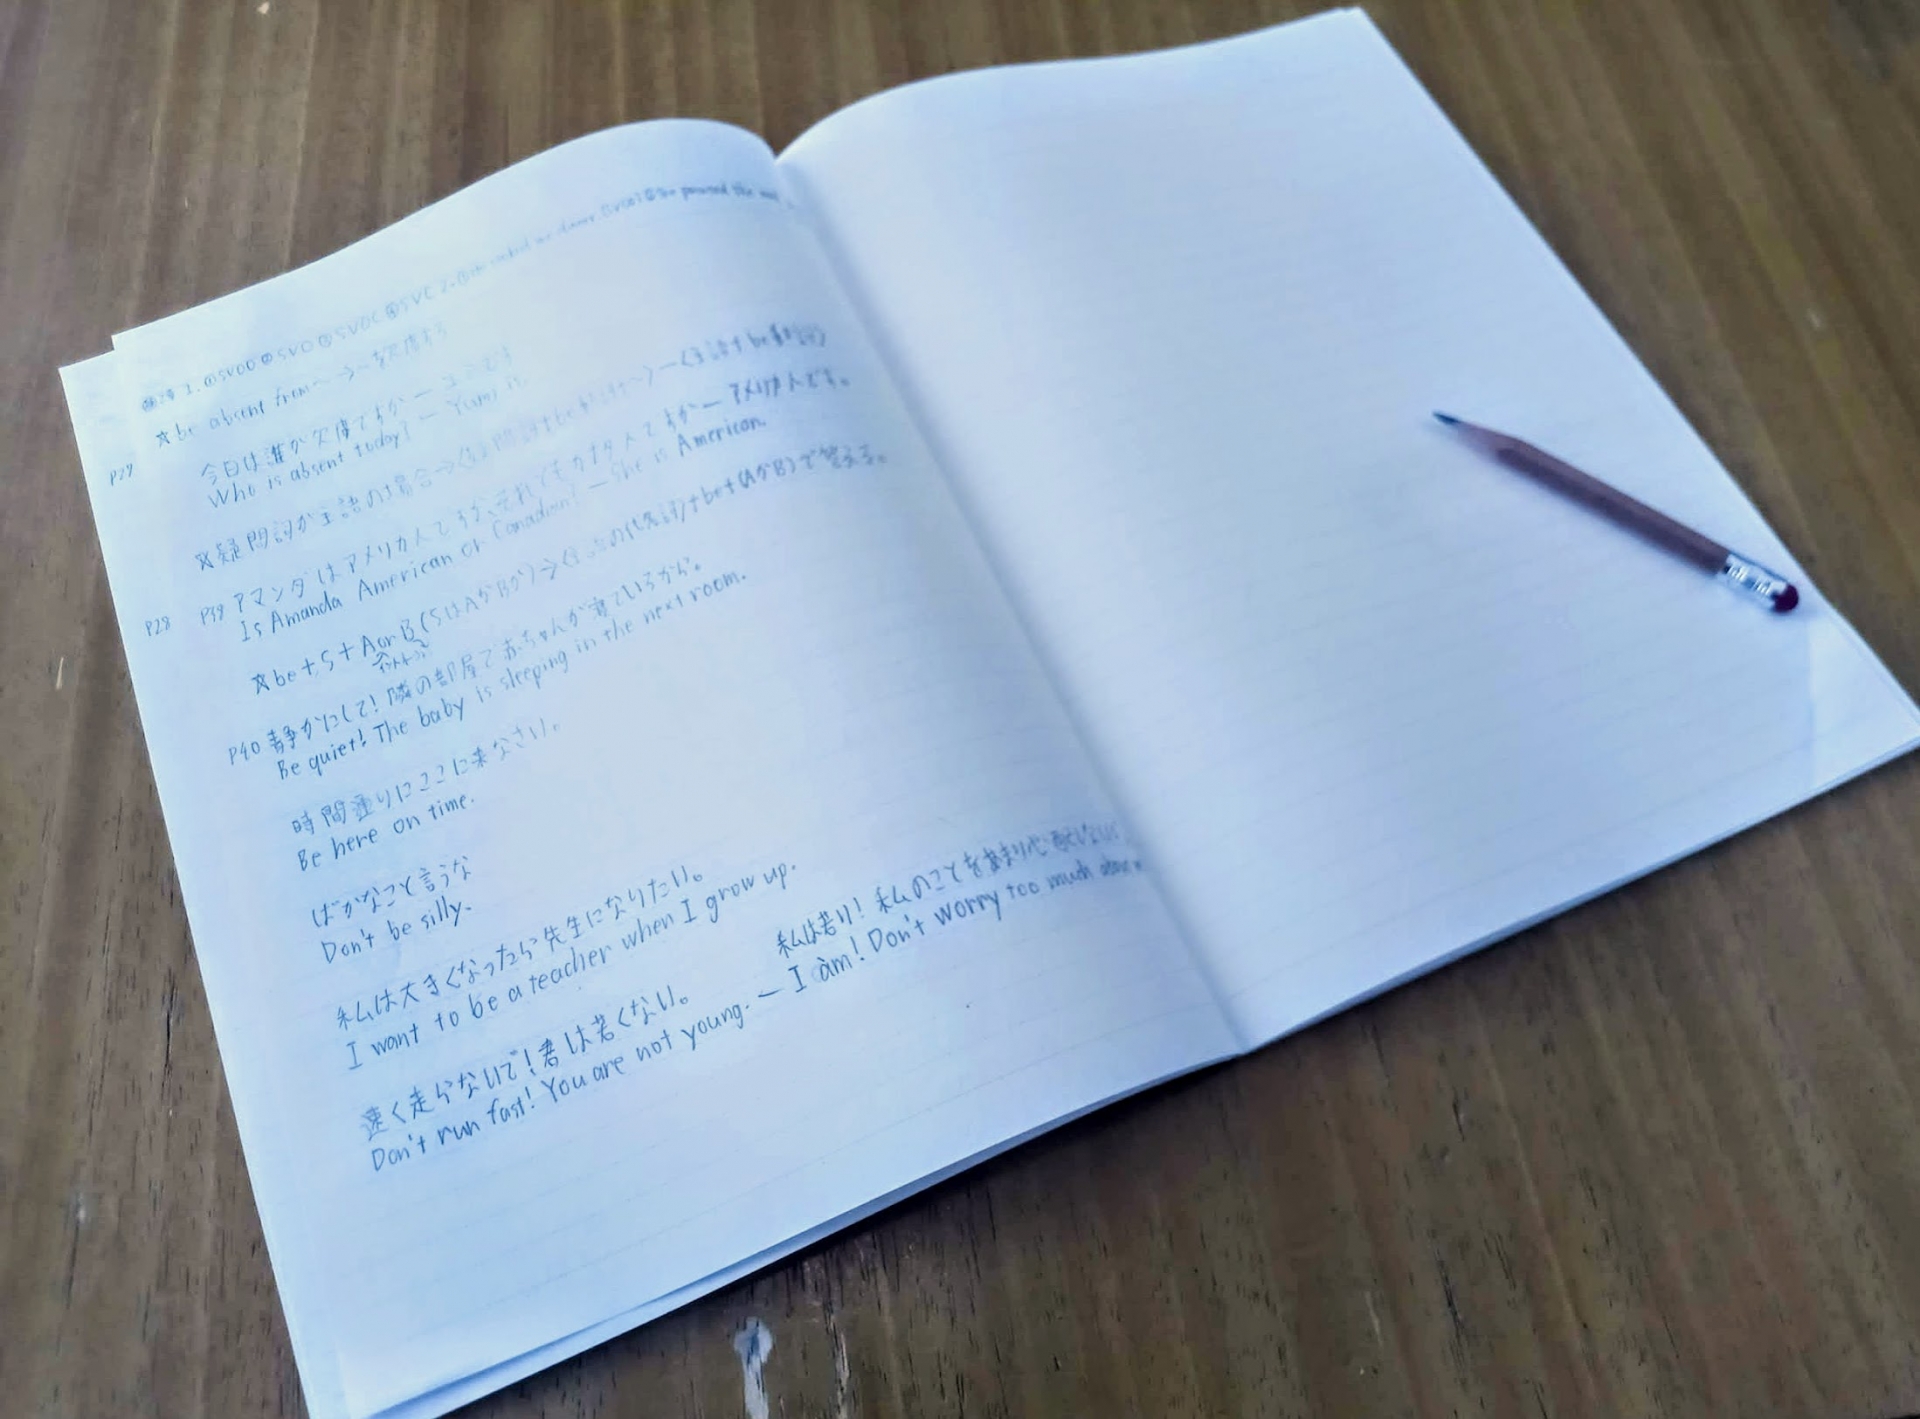 1. ①SVOO ②SVO ③SVOC ④SVC 2. ① the
☆be absent from ~ → ~を欠席する
P27 今日は誰が欠席ですか ー ユミです
Who is absent today? — Yumi is.
☆疑問詞が主語の場合→(疑問詞+be動詞+~) ー (主語+be動詞)
P28 P39 アマンダはアメリカ人ですか、それともカナダ人ですかー アメリカ人です。
Is Amanda American or Canadian? — She is American.
☆be+S+A or B (SはAかBか)→(主語の代名詞)+be+(AかB)で答える。
P40 静かにして!隣の部屋で赤ちゃんが寝ているから。
Be quiet! The baby is sleeping in the next room.
時間通りにここに来なさい。
Be here on time.
ばかなこと言うな
Don't be silly.
私は大きくなったら先生になりたい。
I want to be a teacher when I grow up.
速く走らないで!君は若くない。 私は若い!私のことを余り心配しない
Don't run fast! You are not young. — I am! Don't worry too much about